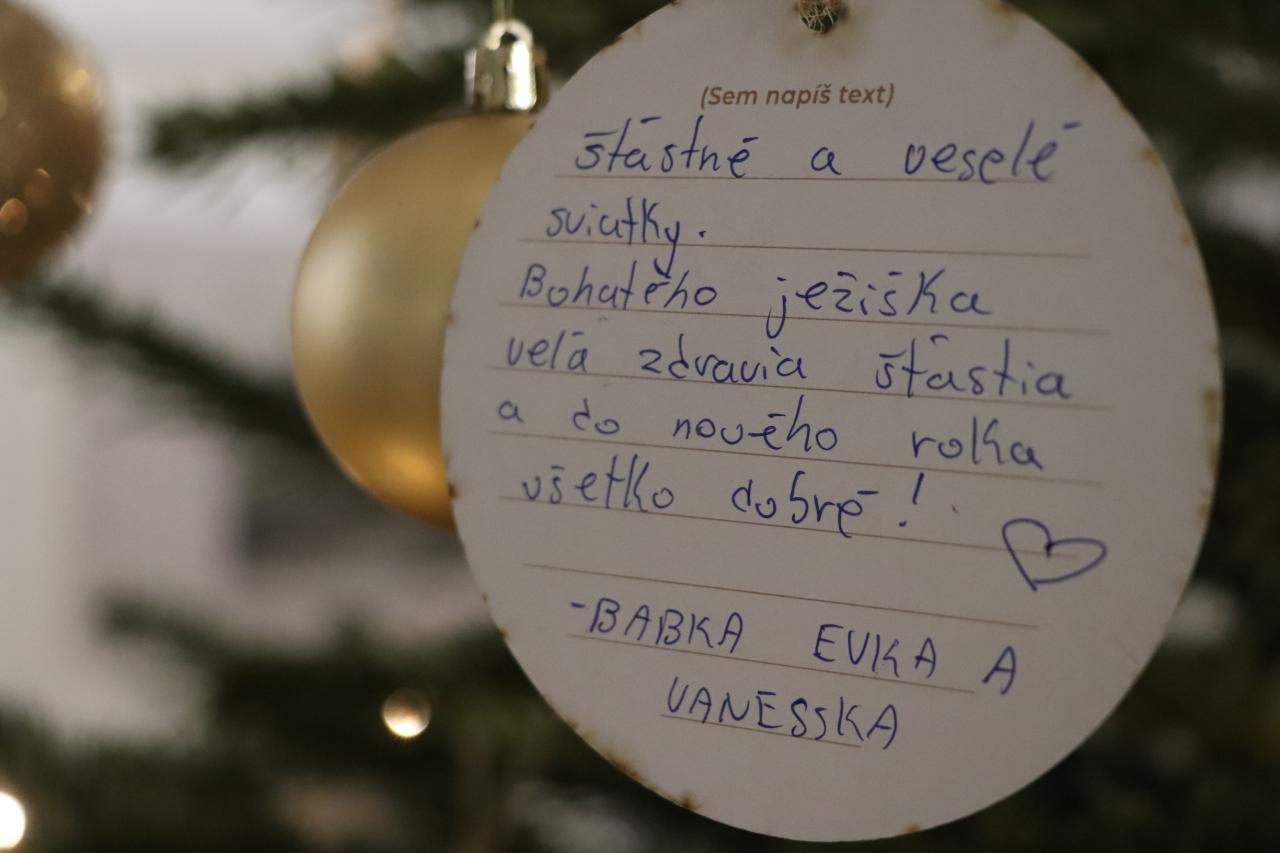 (Sem napíš text)
šťastné a veselé
sviatky.
Bohatého ježiška
velá zdravia šťastia
a do nového roka
všetko dobré!
-BABKA EVKA A
VANESSKA